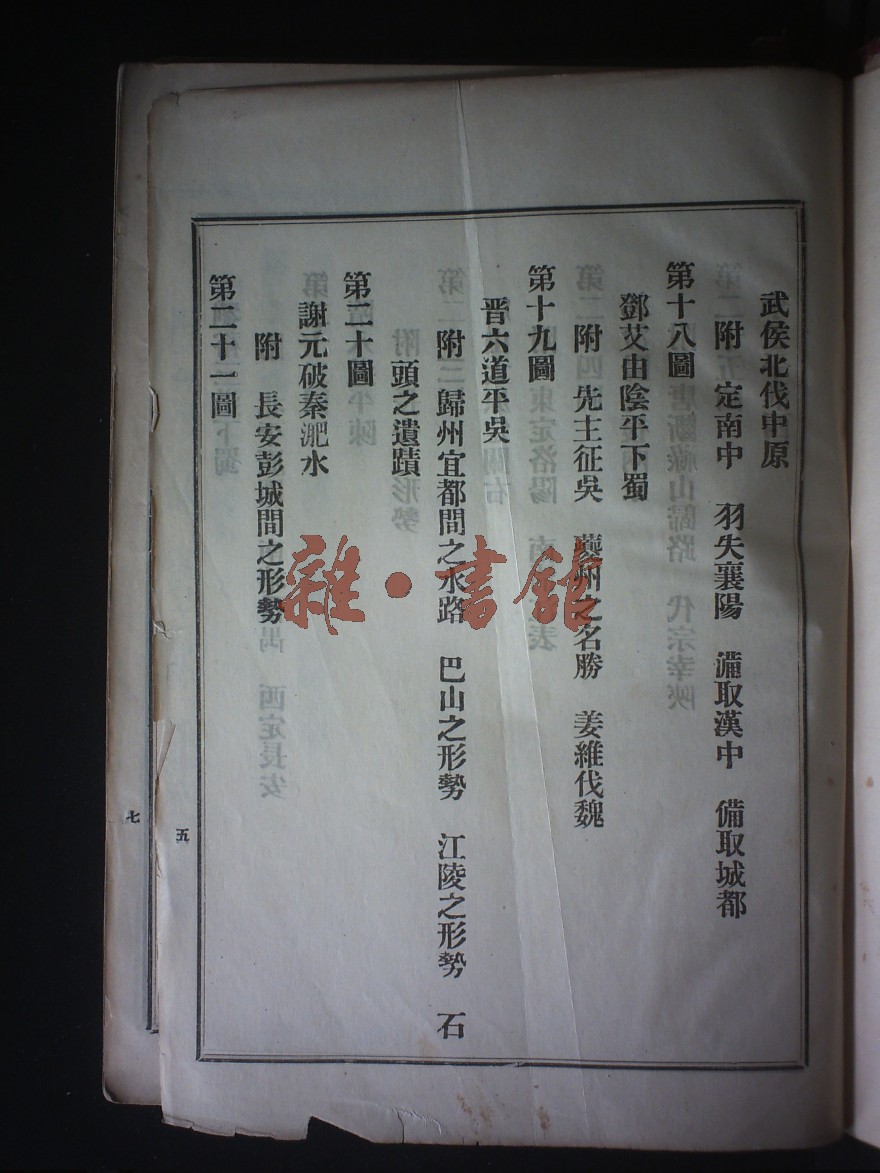 武侯北伐中原
附 定南中 羽失襄陽 備取漢中 備取城都
第十八圖
鄧艾由陰平下蜀
附 先主征吳 夔州之名勝 姜維伐魏
第十九圖
晋六道平吳
附 歸州宜都間之水路 巴山之形勢 江陵之形勢 石
頭之遺蹟
第二十圖
謝元破秦淝水
附 長安彭城間之形勢
第二十一圖
五
七
雜·書館